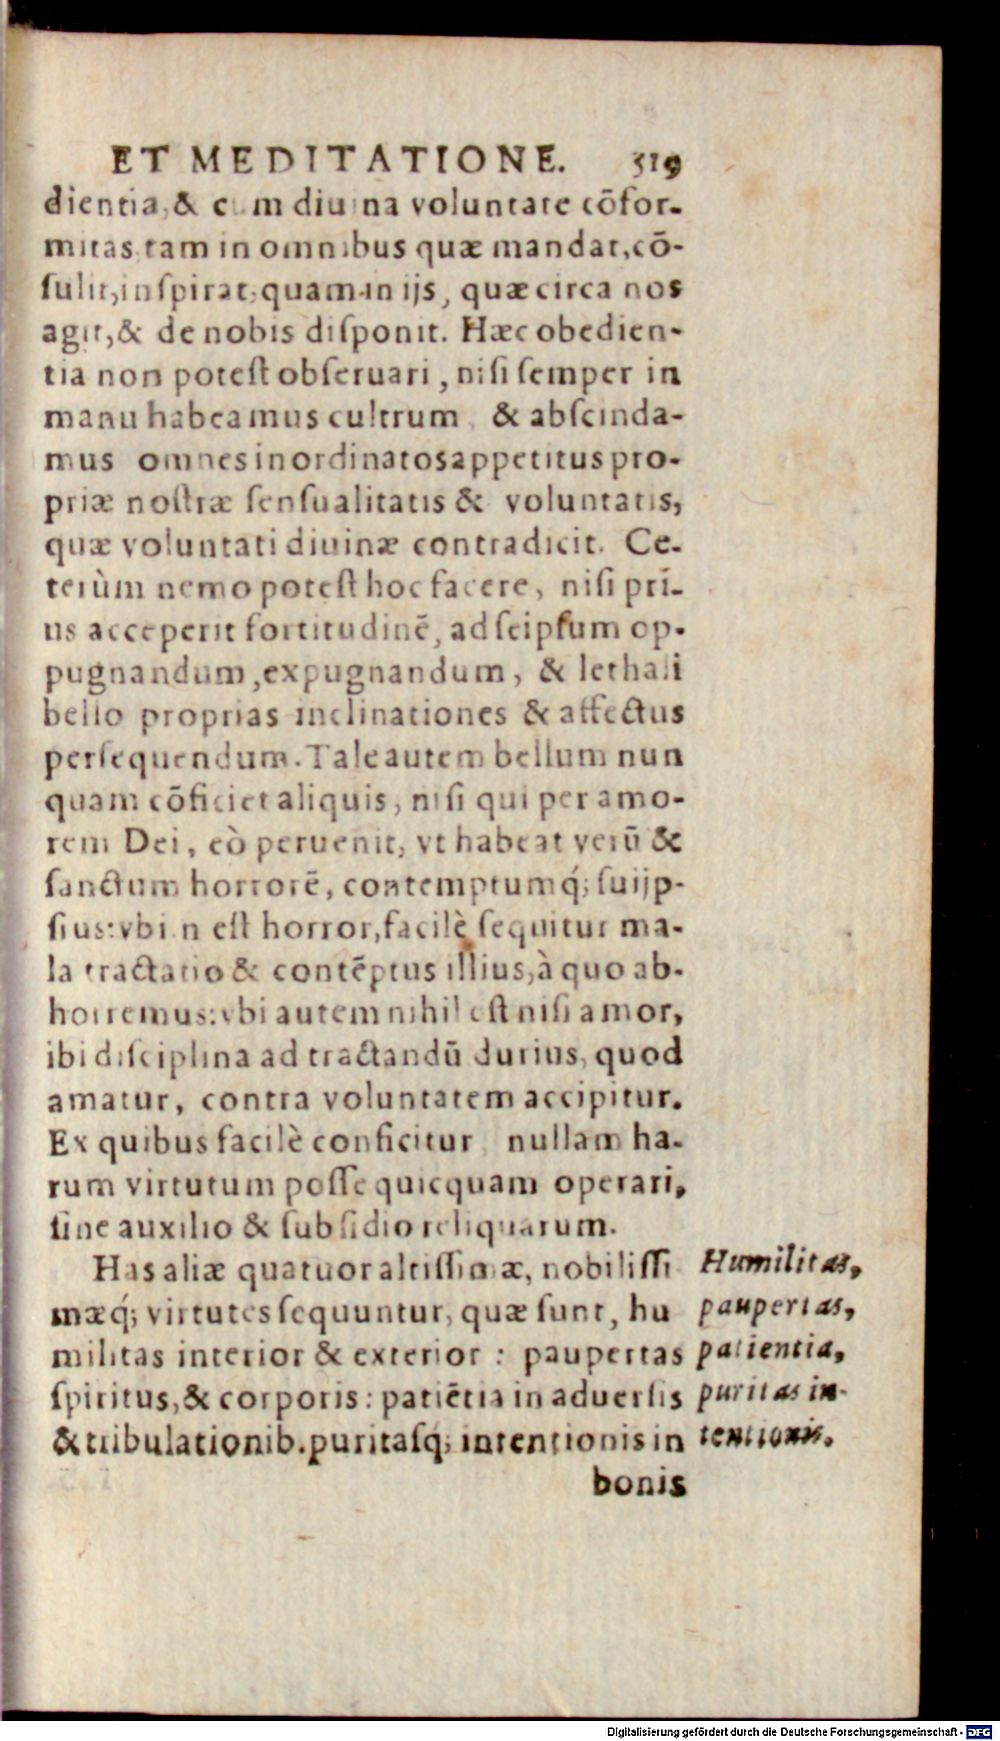 ET MEDITATIONE. 519
dientia, & cum diuina voluntate cõfor-
mitas tam in omnibus quæ mandat, cõ-
ſulit, inſpirat, quam in ijs, quæ circa nos
agit, & de nobis diſponit. Hæc obedien-
tia non poteſt obſeruari, niſi ſemper in
manu habeamus cultrum, & abſcinda-
mus omnes inordinatos appetitus pro-
priæ noſtræ ſenſualitatis & voluntatis,
quæ voluntati diuinæ contradicit. Ce-
terùm nemo poteſt hoc facere, niſi prí-
us acceperit fortitudinẽ, ad ſeipſum op-
pugnandum, expugnandum, & lethali
bello proprias inclinationes & affectus
perſequendum. Tale autem bellum nun
quam cõficiet aliquis, niſi qui per amo-
rem Dei, eò peruenit, vt habeat verũ &
ſanctum horrorẽ, contemptumq́; ſuijp-
ſius: vbi n eſt horror, facilè ſequitur ma-
la tractatio & contẽptus illius, à quo ab-
horremus: vbi autem nihil eſt niſi amor,
ibi diſciplina ad tractandũ durius, quod
amatur, contra voluntatem accipitur.
Ex quibus facilè conficitur, nullam ha-
rum virtutum poſſe quicquam operari,
ſine auxilio & ſubſidio reliquarum.
Has aliæ quatuor altiſſimæ, nobiliſſi
mæq́; virtutes ſequuntur, quæ ſunt, hu
militas interior & exterior : paupertas
ſpiritus, & corporis : patiẽtia in aduerſis
& tribulationib. puritaſq́; intentionis in
bonis
Humilitas,
paupertas,
patientia,
puritas in-
tentionis.
Digitalisierung gefördert durch die Deutsche Forschungsgemeinschaft - DFG